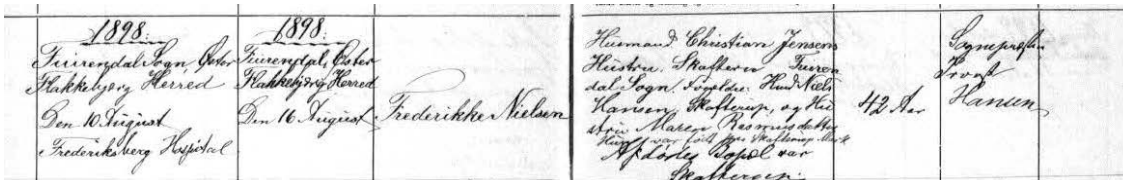 1898.
Fuirendal Sogn Øster
Flakkebjerg Herred
Den 10 August
Frederiksberg Hospital
1898.
Fuirendal, Øster
Flakkebjerg Herred
Den 16 August
Frederikke Nielsen
Husmand Christian Jensens
Hustru. Skafterup Fuiren
dal Sogn. Forældre: Husmd Niels
Hansen, Skafterup, og Hu
stru Maren Rasmusdatter
Hun var født paa Skafterup Mark
Afdødes Bopæl var
Skafterup.
42 Aar
Sognepræsten
Provst
Hansen